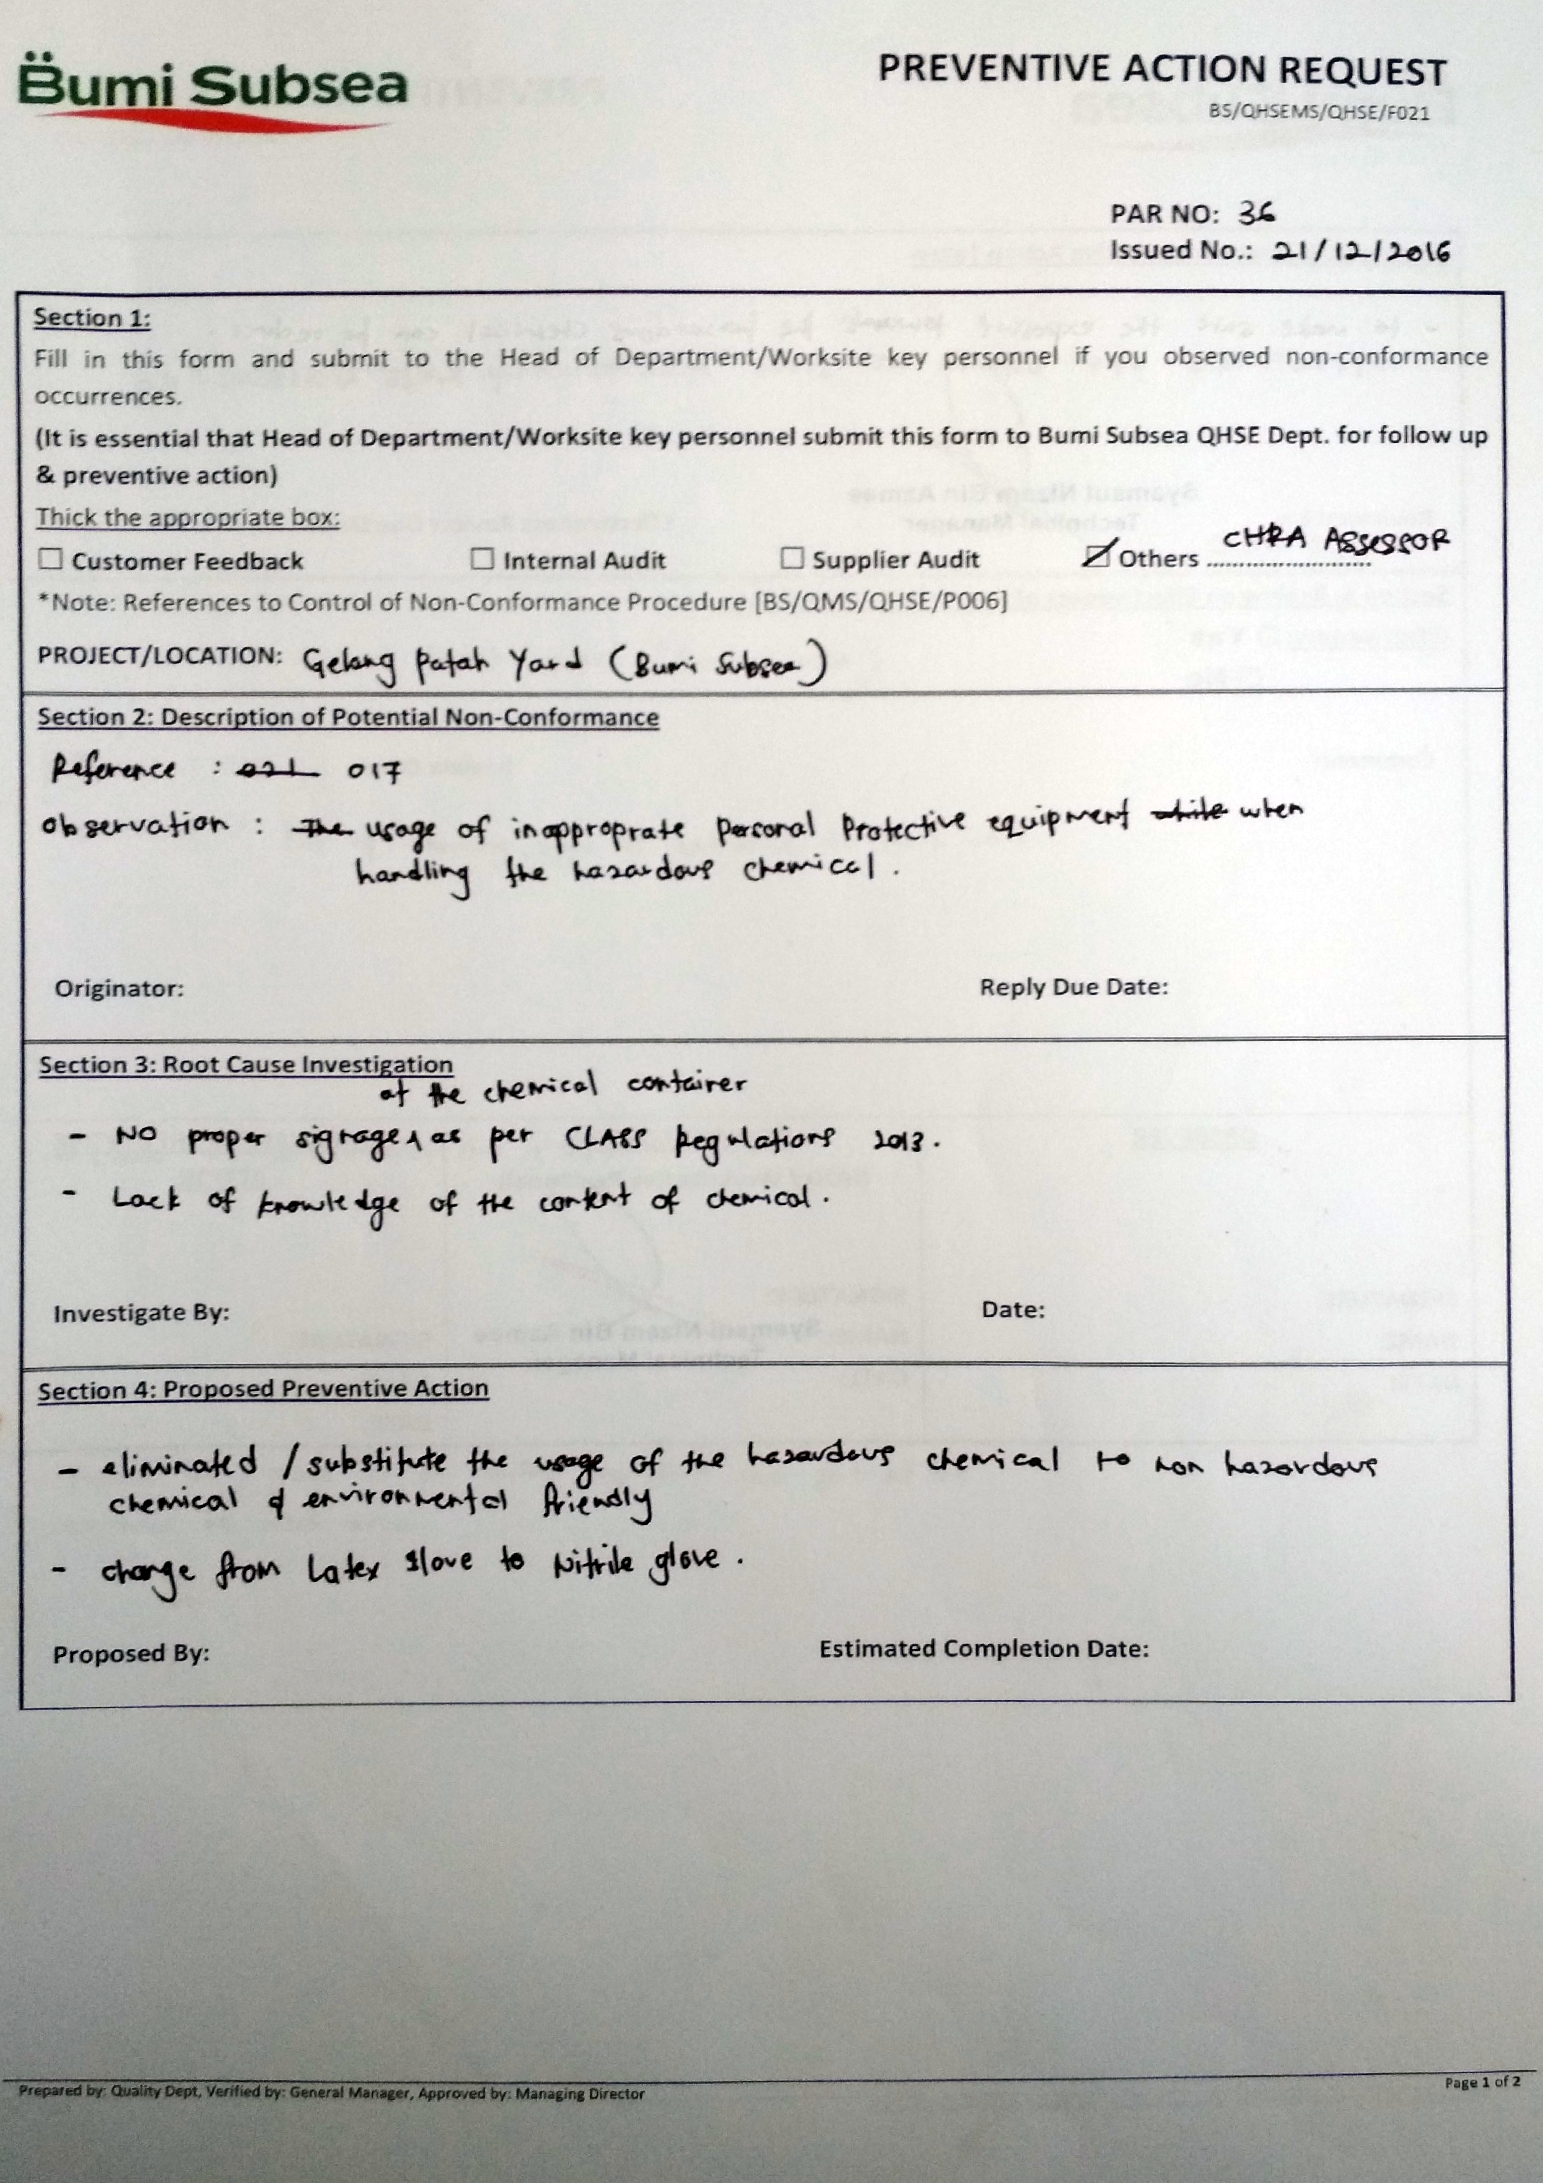 Bumi Subsea
PREVENTIVE ACTION REQUEST
BS/QHSEMS/QHSE/F021
PAR NO: 36
Issued No.: 21/12/2016
Section 1:
Fill in this form and submit to the Head of Department/Worksite key personnel if you observed non-conformance
occurrences.
(It is essential that Head of Department/Worksite key personnel submit this form to Bumi Subsea QHSE Dept. for follow up
& preventive action)
Thick the appropriate box:
☐ Customer Feedback ☐ Internal Audit ☐ Supplier Audit ☑ Others CHRA ASSESSOR
*Note: References to Control of Non-Conformance Procedure [BS/QMS/QHSE/P006]
PROJECT/LOCATION: Gelang Patah Yard (Bumi Subsea)
Section 2: Description of Potential Non-Conformance
Reference : 021 017
Observation : The usage of inapproprate Personal Protective equipment while when
handling the hazardous chemical.
Originator: Reply Due Date:
Section 3: Root Cause Investigation
at the chemical container
- NO proper signage, as per CLASS Regulations 2013.
- Lack of knowledge of the content of chemical.
Investigate By: Date:
Section 4: Proposed Preventive Action
- eliminated / substitute the usage of the hazardous chemical to non hazardous
chemical & environmental friendly
- change from Latex glove to Nitrile glove.
Proposed By: Estimated Completion Date:
Prepared by: Quality Dept, Verified by: General Manager, Approved by: Managing Director
Page 1 of 2